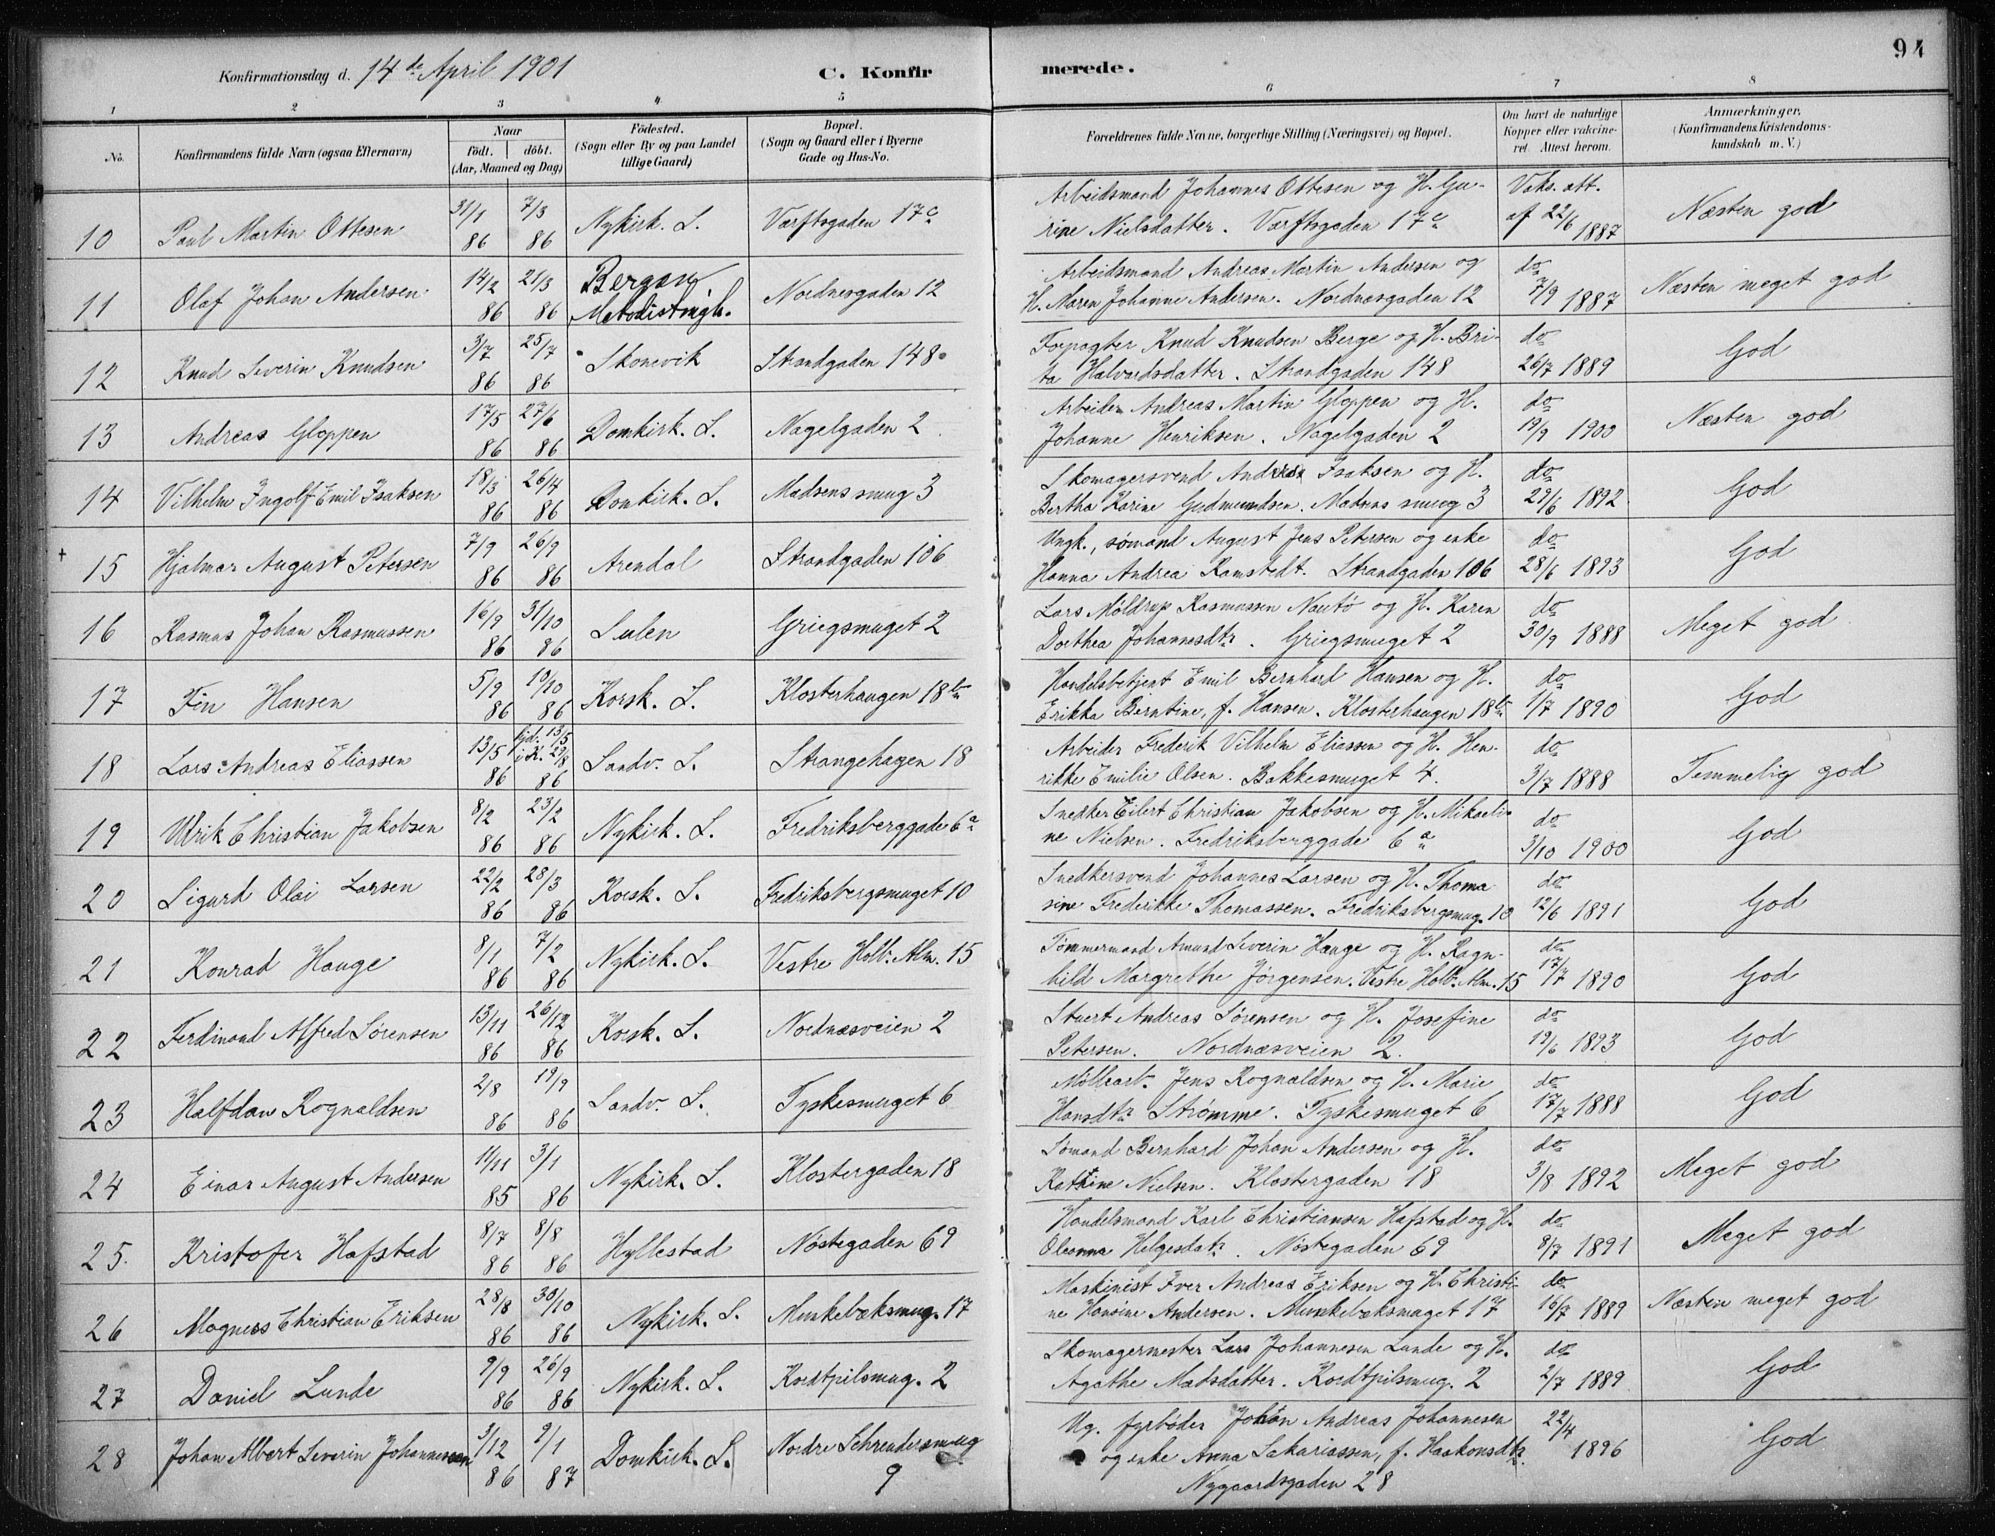 94
Konfirmationsdag d. 14de April 1901
C. Konfirmerede.
1 2 3 4 5 6 7 8
No. Konfirmandens fulde Navn (ogsaa Efternavn) Naar Födt. döbt. (Aar, Maaned og Dag) Födested. (Sogn eller By og paa Landet tillige Gaard) Bopæl. (Sogn og Gaard eller i Byerne Gade og Hus-No. Forældrenes fulde Navne, borgerlige Stilling (Næringsvei) og Bopæl. Om havt de naturlige Kopper eller vaccineret. Attest herom. Anmærkninger. (Konfirmandens Kristendomskundskab m. V.)
10 Paul Martin Ottesen 31/1 86 7/3 86 Nykirk. S. Værftsgaden 17c Arbeidsmand Johannes Ottesen og H. Gu-
rine Nielsdatter. Værftsgaden 17c Vaks. att. af 22/6 1887 Næsten god
11 Olaf Johan Andersen 14/2 86 21/3 86 Bergen. Metodistmgh. Nordnesgaden 12 Arbeidsmand Andreas Martin Andersen og
H. Maren Johanne Andersen. Nordnæsgaden 12 do 7/9 1887 Næsten meget god
12 Knud Severin Knudsen 3/7 86 25/7 86 Skonevik Strandgaden 148 Forpagter Knud Knudsen Berge og H. Bri-
ta Halvardsdatter. Strandgaden 148 do 26/7 1889 God
13 Andreas Gloppen 17/5 86 27/6 86 Domkirk. S. Nagelgaden 2 Arbeider Andreas Martin Gloppen og H.
Johanne Henriksen. Nagelgaden 2 do 19/9 1900 Næsten god
14 Vilhelm Ingolf Emil Isaksen 18/3 86 26/4 86 Domkirk. S. Madsens smug 3 Skomagersvend Andreas Isaksen og H.
Bertha Karine Gudmundsen. Madsens smug 3 do 29/6 1892 God
15 Hjalmar August Petersen 7/9 86 26/9 86 Arendal Strandgaden 106 Ungk., sømand August Jens Petersen og enke
Hanna Andrea Ramstedt. Strandgaden 106 do 28/6 1893 God
16 Rasmus Johan Rasmussen 16/9 86 31/10 86 Sulen Griegsmuget 2 Lars Møldrup Rasmussen Nautø og H. Karen
Dorthea Johannesdtr. Griegsmuget 2 do 30/9 1888 Meget god
17 Fin Hansen 5/9 86 10/10 86 Korsk. S. Klosterhaugen 18b Handelsbetjent Emil Bernhard Hansen og H.
Erikka Berntine, f. Hansen. Klosterhaugen 18b do 1/7 1890 God
18 Lars Andreas Eliassen 13/5 86 hjd. 13/5 i K. 29/8 86 Sandv. S. Strangehagen 18 Arbeider Frederik Vilhelm Eliassen og H. Hen-
rikke Emilie Olsen. Bakkesmuget 4. do 3/7 1888 Temmelig god
19 Ulrik Christian Jakobsen 8/2 86 23/2 86 Nykirk. S. Fredriksberggade 6a Snedker Eilert Christian Jakobsen og H. Mikaeli-
ne Nielsen. Fredriksberggade 6a do 3/10 1900 God
20 Sigurd Olai Larsen 22/2 86 28/3 86 Korsk. S. Fredriksbergsmuget 10 Snedkersvend Johannes Larsen og H. Thoma
sine Frederikke Thomassen. Fredriksbergsmug. 10 do 12/6 1891 God
21 Konrad Hauge 8/1 86 7/2 86 Nykirk. S. Vestre Holb. Alm. 15 Tømmermand Amund Severin Hauge og H. Ragn-
hild Margrethe Jørgensen. Vestre Holb. Alm. 15 do 17/7 1890 God
22 Ferdinand Alfred Sørensen 13/11 86 26/12 86 Korsk. S. Nordnæsveien 2 Stuert Andreas Sørensen og H. Josefine
Petersen. Nordnæsveien 2. do 19/6 1893 God
23 Halfdan Rognaldsen 2/8 86 19/9 86 Sandv. S. Tyskesmuget 6 Møllearb. Jens Rognaldsen og H. Marie
Hansdtr Strømme. Tyskesmuget 6 do 17/7 1888 God
24 Einar August Andersen 11/11 85 3/1 86 Nykirk. S. Klostergaden 18 Sømand Bernhard Johan Andersen og H.
Kathine Nielsen. Klostergaden 18 do 3/8 1892 Meget god
25. Kristofer Hafstad 8/7 86 8/8 86 Hyllestad Nøstegaden 69 Handelsmand Karl Christiansen Hafstad og H.
Oleanna Helgesdatr. Nøstegaden 69 do 8/7 1891 Meget god
26 Magnus Christian Eriksen 28/8 86 30/10 86 Nykirk. S. Munkebæksmug. 17 Maskinist Iver Andreas Eriksen og H. Christi-
ne Hansine Andersen. Munkebæksmuget 17 do 16/7 1889 Næsten meget god
27 Daniel Lunde 9/9 86 26/9 86 Nykirk. S. Kordtpilsmug. 2 Skomagermester Lars Johannesen Lunde og H.
Agathe Madsdatter. Kordtpilsmug. 2 do 2/7 1889 God
28 Johan Albert Severin Johannessen 3/12 86 9/1 87 Domkirk. S. Nordre Schreudersmug 9 Ug. fyrbøder Johan Andreas Johannesen
og enke Anna Sakariassen, f. Haakonsdtr.
Nygaardsgaden 28 22/4 1896 God